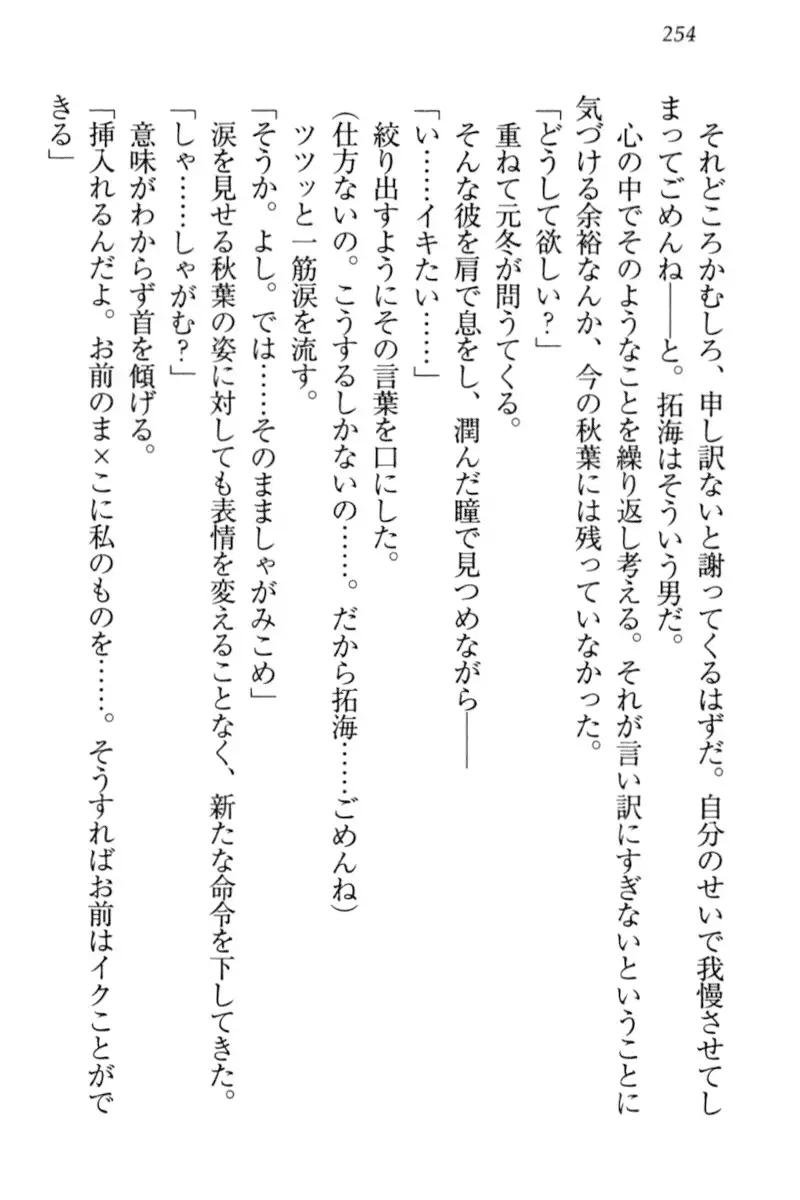 254
　それどころかむしろ、申し訳ないと謝ってくるはずだ。自分のせいで我慢させてし
まってごめんね――と。拓海はそういう男だ。
　心の中でそのようなことを繰り返し考える。それが言い訳にすぎないということに
気づける余裕なんか、今の秋葉には残っていなかった。
「どうして欲しい？」
　重ねて元冬が問うてくる。
　そんな彼を肩で息をし、潤んだ瞳で見つめながら――
「い……イキたい……」
　絞り出すようにその言葉を口にした。
（仕方ないの。こうするしかないの……。だから拓海……ごめんね）
　ツツッと一筋涙を流す。
「そうか。よし。では……そのまましゃがみこめ」
　涙を見せる秋葉の姿に対しても表情を変えることなく、新たな命令を下してきた。
「しゃ……しゃがむ？」
　意味がわからず首を傾げる。
「挿入れるんだよ。お前のま×こに私のものを……。そうすればお前はイクことがで
きる」